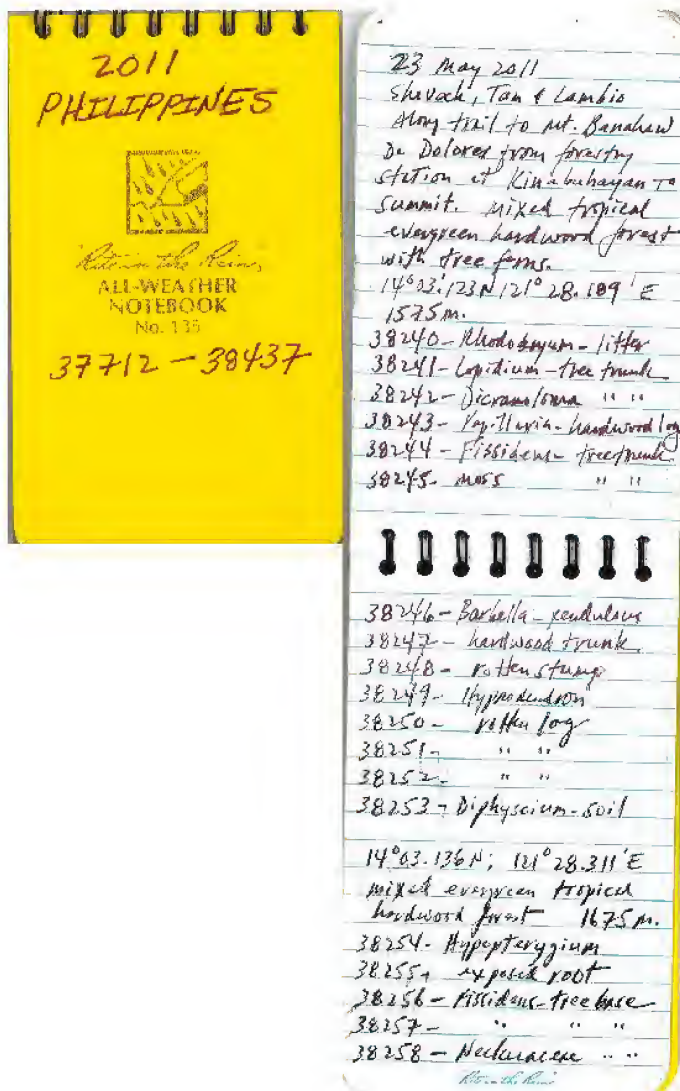 2011
PHILIPPINES
"Rite in the Rain"
ALL-WEATHER
NOTEBOOK
No. 135
37712 — 38437
23 May 2011
Shevock, Tan & Lambio
Along trail to Mt. Banahaw
De Dolores from forestry
station at Kinabuhayan To
summit. Mixed tropical
evergreen hardwood forest
with tree ferns.
14°03.123N 121° 28.189'E
1575m.
38240 - Rhodobryum - litter
38241 - Lopidium - tree trunk
38242 - Dicranoloma " "
38243 - Papillaria - hardwood log
38244 - Fissidens - tree trunk
38245 - moss " "
38246 - Barbella - pendulous
38247 - hardwood trunk
38248 - rotten stump
38249 - Hypnodendron
38250 - rotten log
38251 - " "
38252 - " "
38253 - Diphyscium - soil
14°03.136N; 121° 28.311'E
mixed evergreen tropical
hardwood forest 1675m.
38254 - Hypopterygium
38255 - exposed root
38256 - Fissidens - tree base
38257 - " " "
38258 - Neckeraceae " "
Rite in the Rain